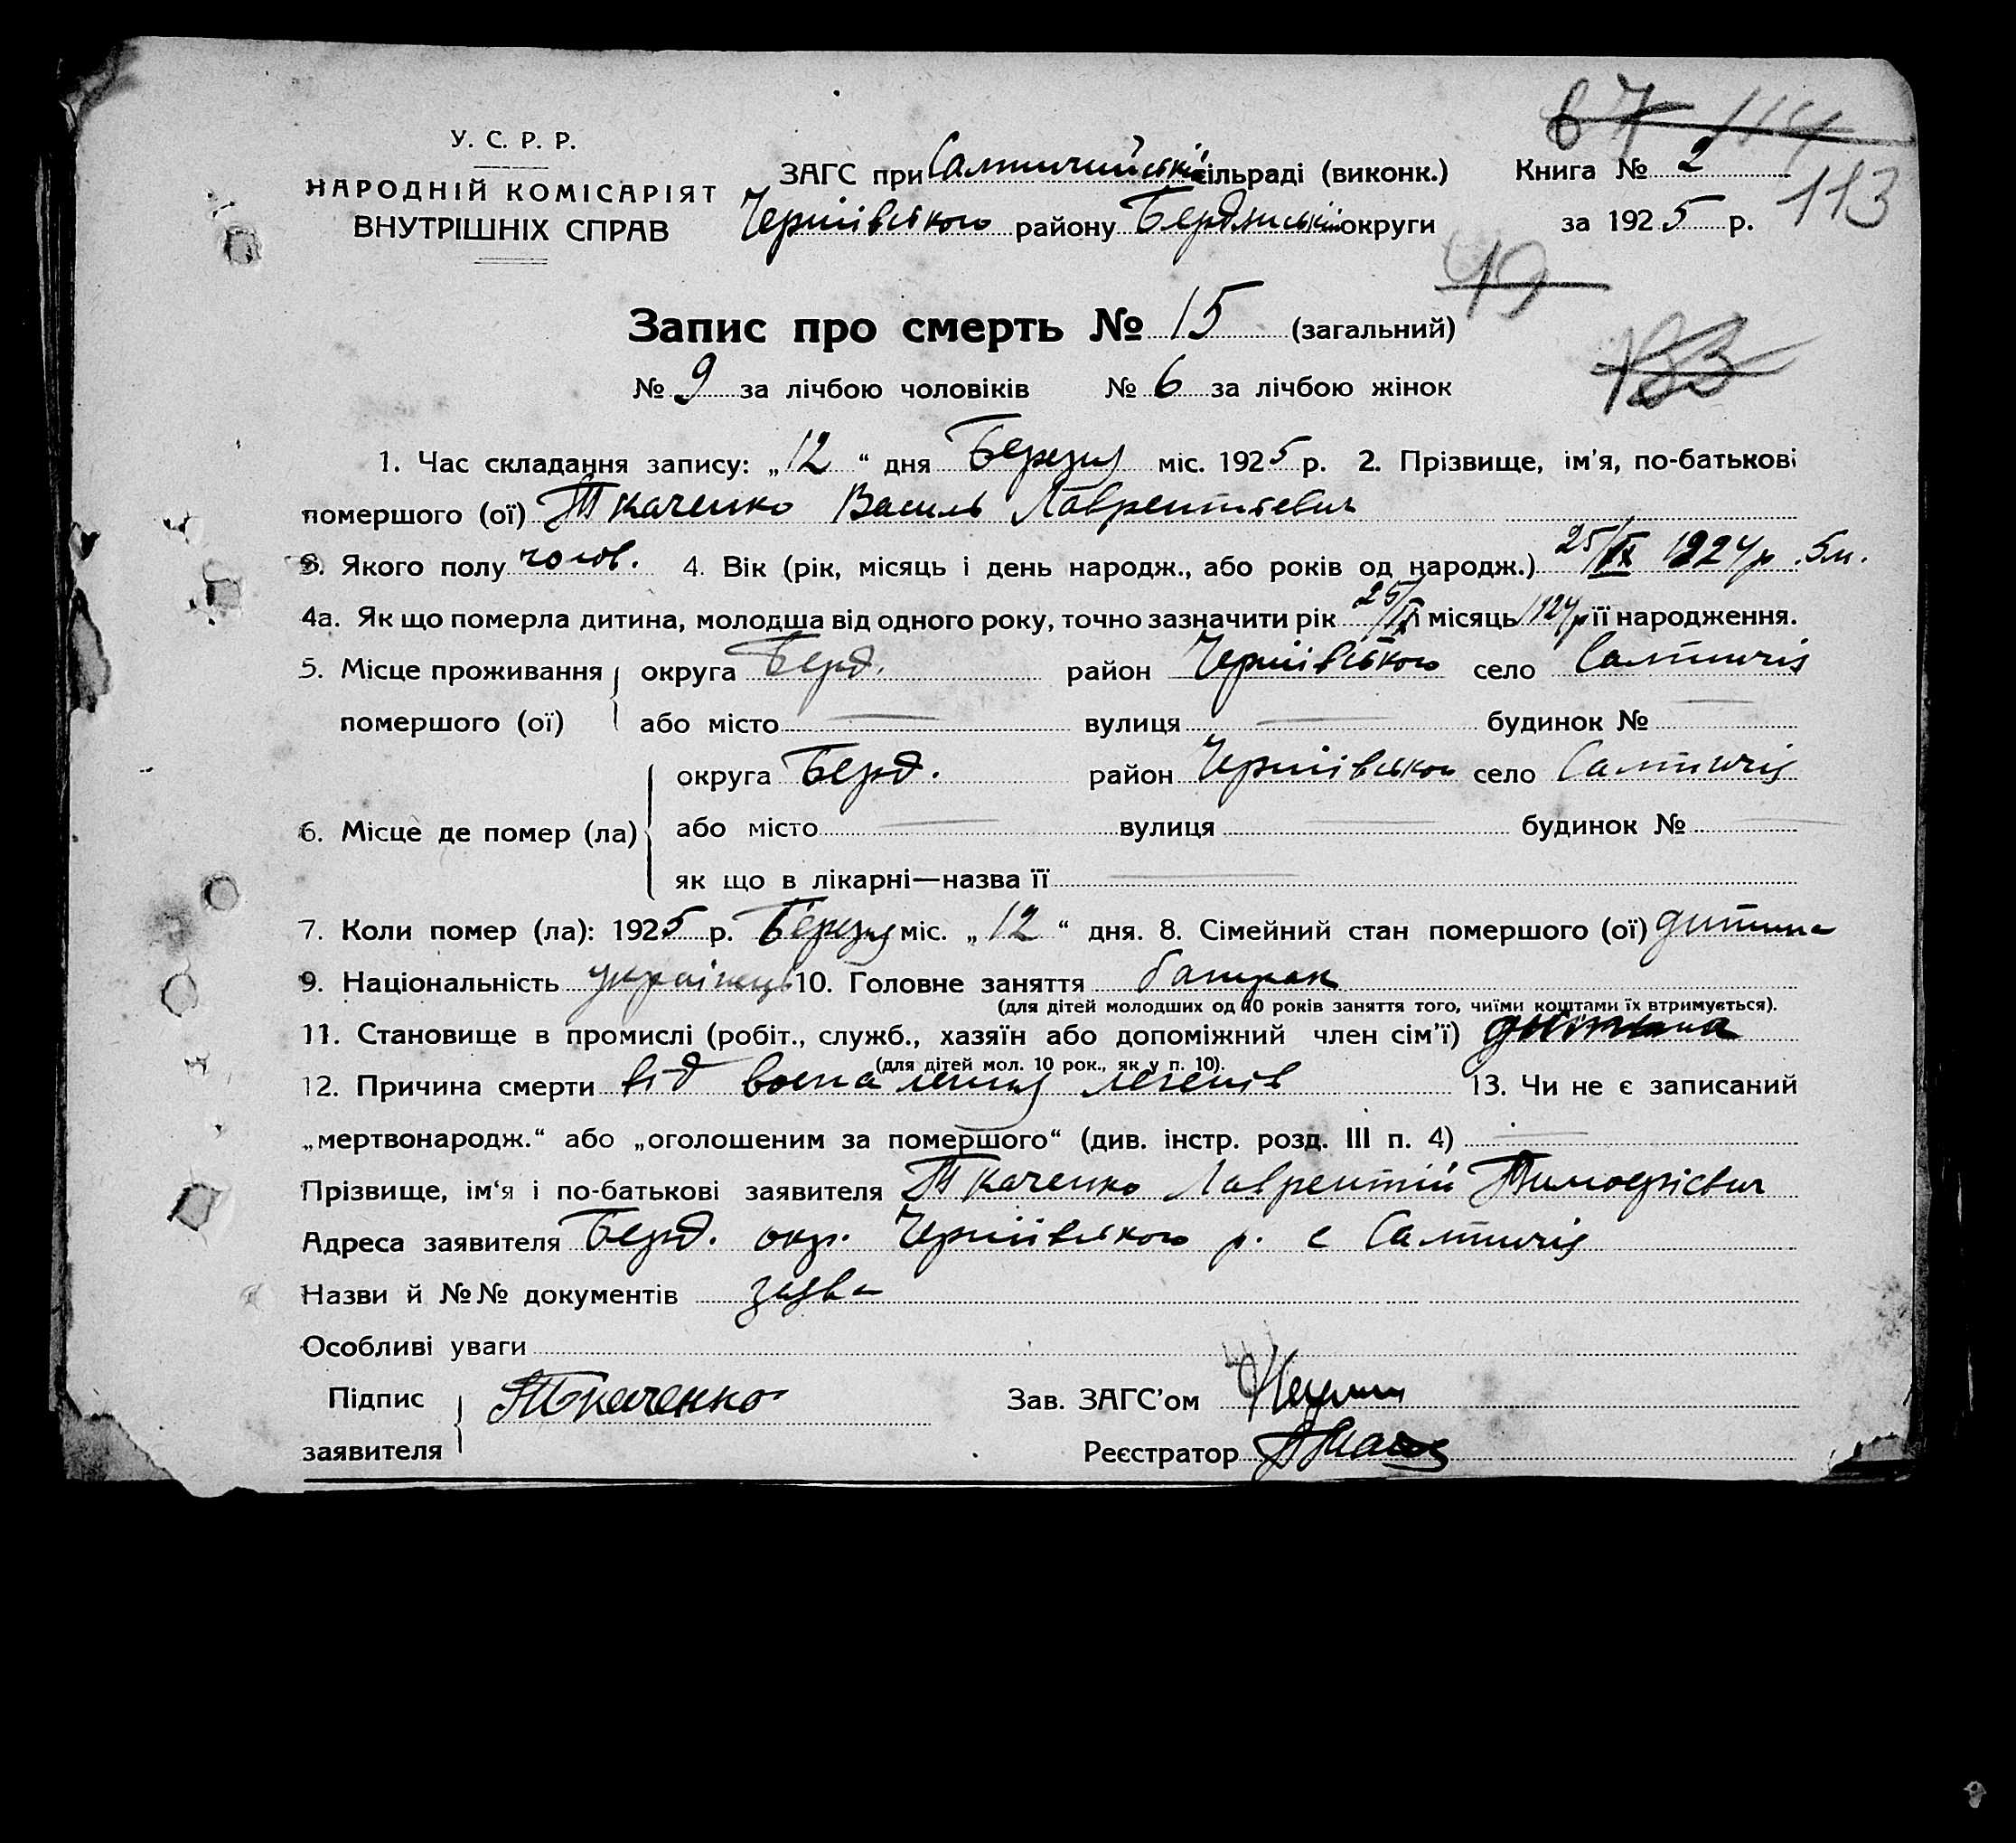 67 114
У. С. Р. Р.
НАРОДНІЙ КОМІСАРІЯТ
ВНУТРІШНІХ СПРАВ
ЗАГС при Салтичийській сільраді (виконк.)
Чернігівського району Бердянської округи
Книга № 2
за 1925 р.
113
49
Запис про смерть № 15 (загальний)
133
№ 9 за лічбою чоловіків № 6 за лічбою жінок
1. Час складання запису: „12“ дня Березня міс. 1925 р. 2. Прізвище, ім'я, по-батькові
помершого (ої) Ткаченко Василь Лаврентієвич
3. Якого полу чолов. 4. Вік (рік, місяць і день народж., або років од народж.) 25/IX 1924 р. 5 м.
4а. Як що померла дитина, молодша від одного року, точно зазначити рік 25/IX місяць 1924 р її народження.
5. Місце проживання округа Берд. район Чернігівського село Салтичія
помершого (ої) або місто — вулиця — будинок № —
округа Берд. район Чернігівського село Салтичія
6. Місце де помер (ла) або місто — вулиця — будинок № —
як що в лікарні—назва її —
7. Коли помер (ла): 1925 р. Березня міс. „12“ дня. 8. Сімейний стан помершого (ої) дитина
9. Національність українець 10. Головне заняття батрак
(для дітей молодших од 10 років заняття того, чиїми коштами їх втримується).
11. Становище в промислі (робіт., служб., хазяїн або допоміжний член сім'ї) дитина
(для дітей мол. 10 рок., як у п. 10).
12. Причина смерти від воспалення легенів 13. Чи не є записаний
„мертвонародж.“ або „оголошеним за помершого“ (див. інстр. розд. III п. 4) —
Прізвище, ім'я і по-батькові заявителя Ткаченко Лаврентій Тимофієвич
Адреса заявителя Берд. окр. Чернігівського р. с Салтичія
Назви й №№ документів заява
Особливі уваги
Підпис заявителя Ткаченко
Зав. ЗАГС'ом
Реєстратор